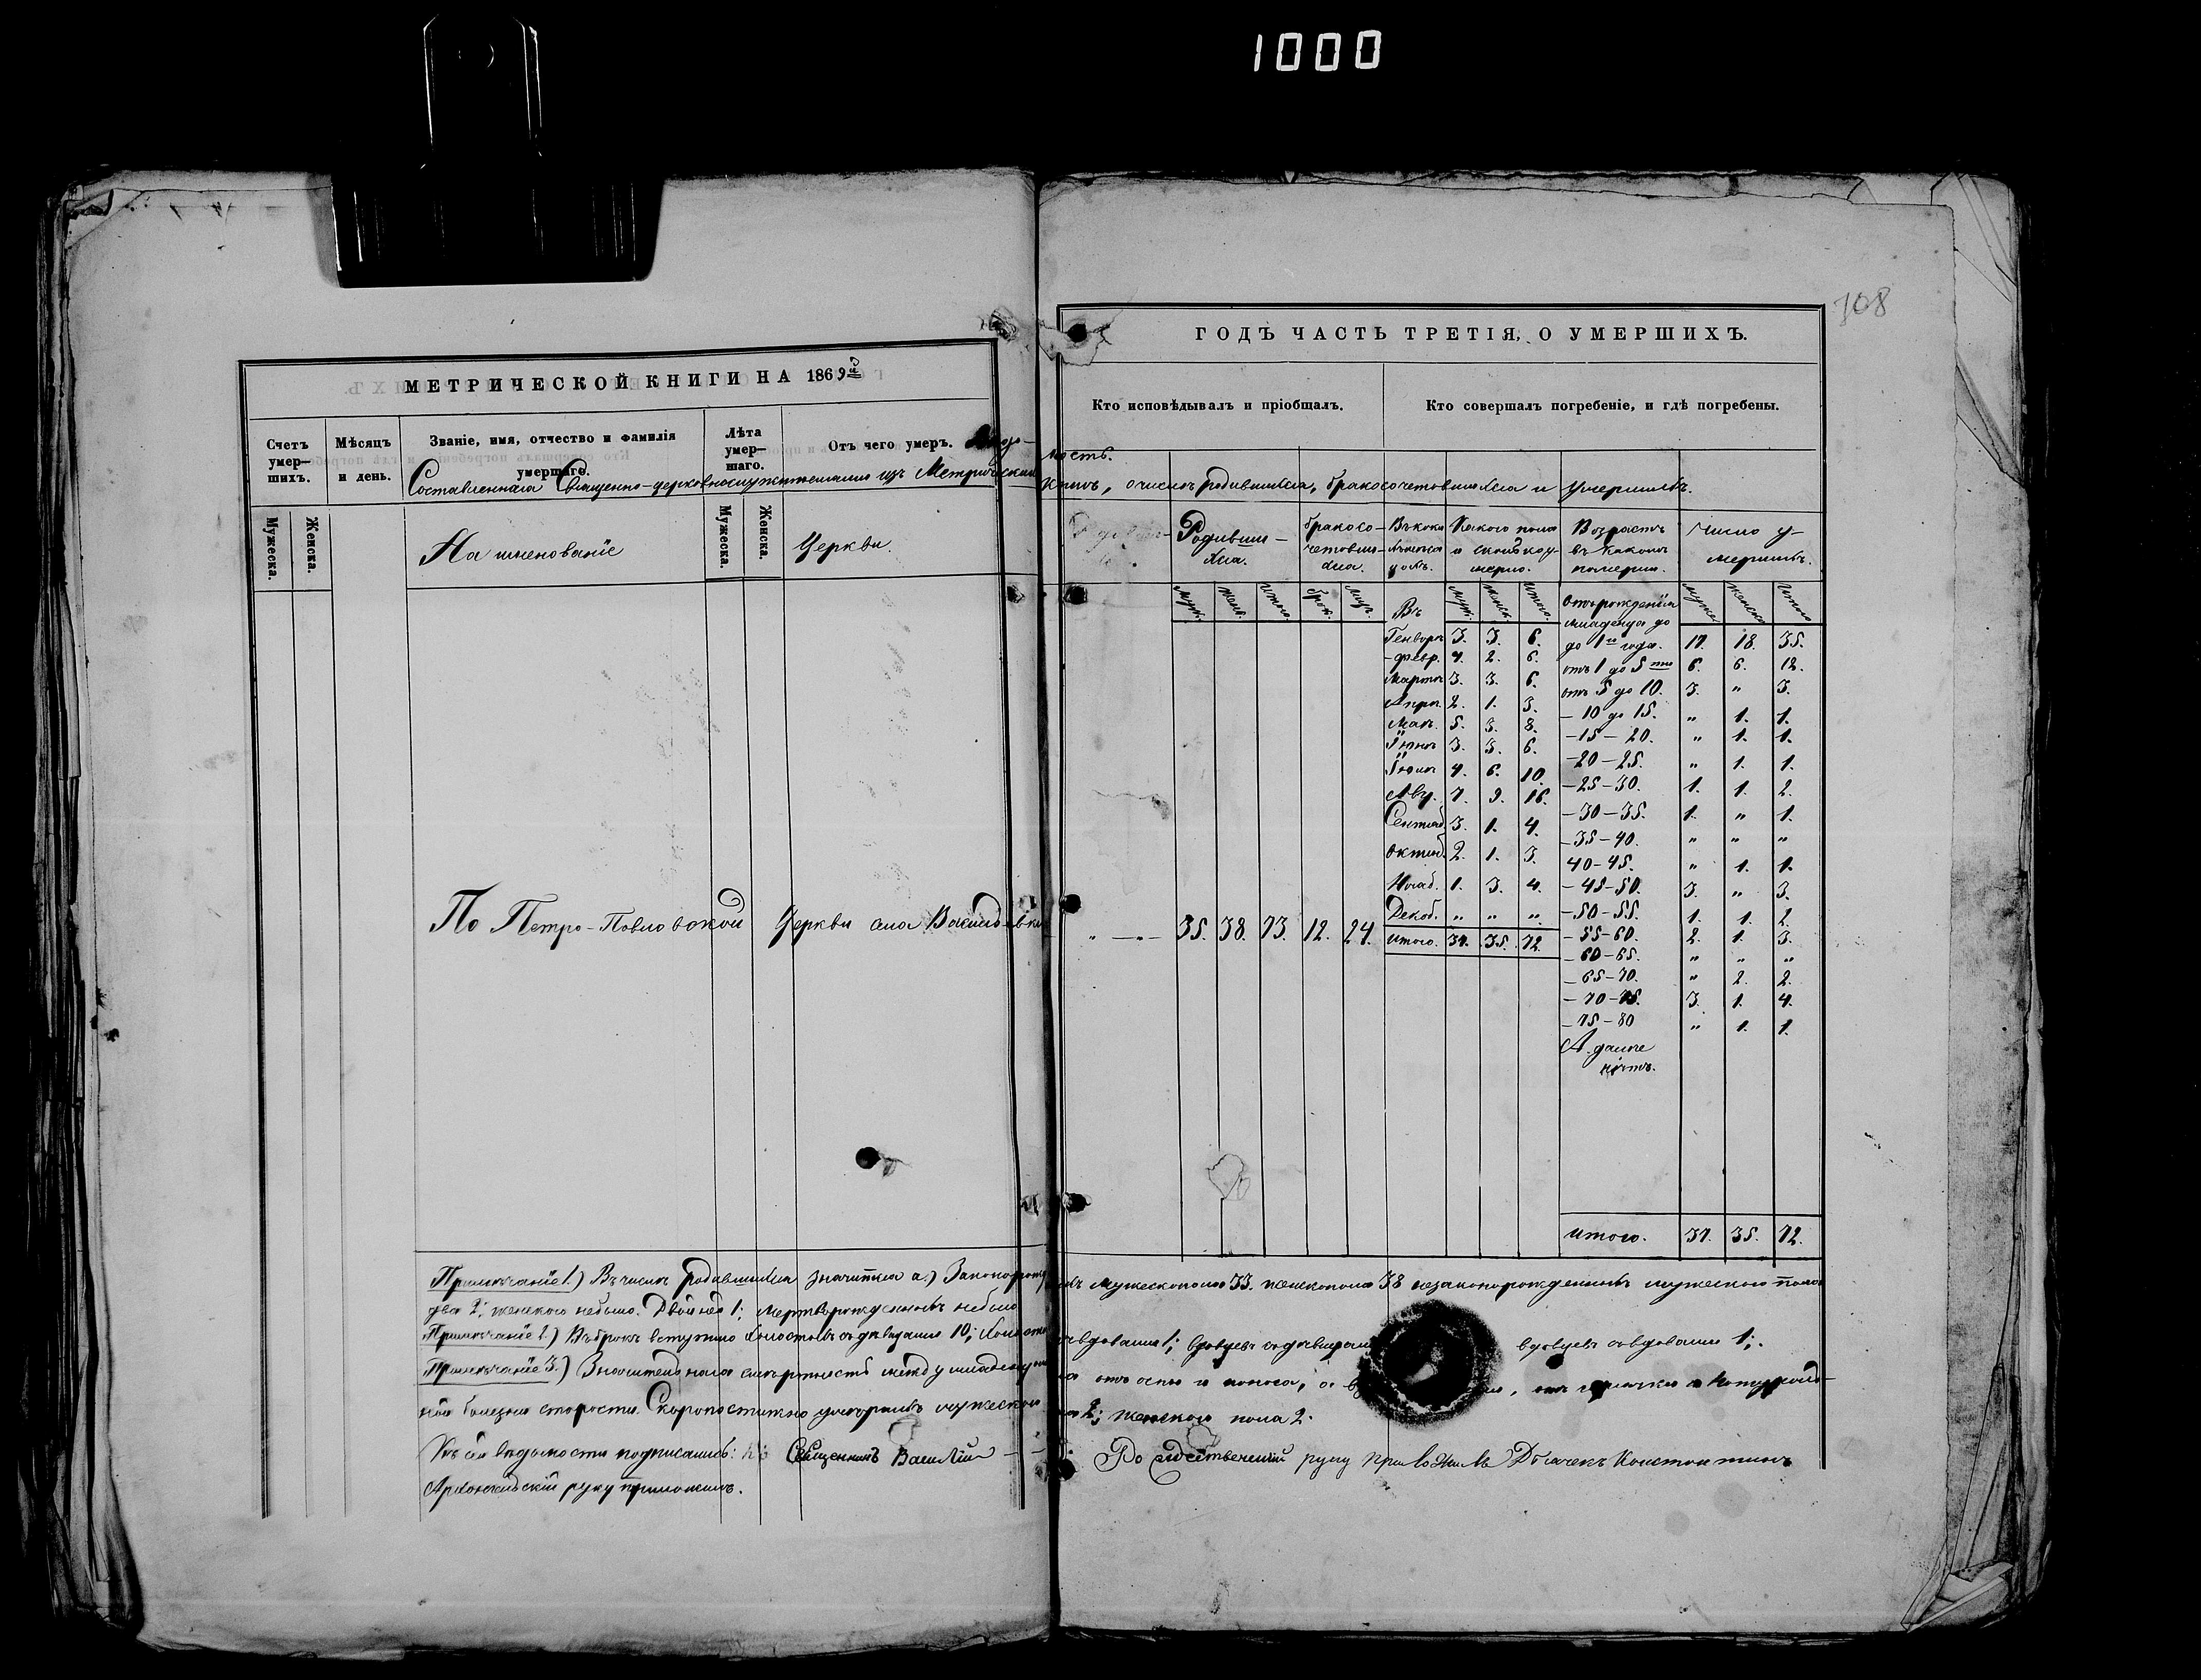 1000
108
МЕТРИЧЕСКОЙ КНИГИ НА 1869й
Счетъ умер-шихъ.
Мѣсяцъ и день.
Званіе, имя, отчество и фамилія умершаго.
Лѣта умер-шаго.
Отъ чего умеръ.
Составленная Священно-церковнослужителями изъ Метрической
Мужеска.
Женска.
На именованіе
Мужеска.
Женска.
Церкви.
По Петро-Павловской Церкви села Васильевки
ГОДЪ ЧАСТЬ ТРЕТІЯ, О УМЕРШИХЪ.
Кто исповѣдывалъ и пріобщалъ.
Кто совершалъ погребеніе, и гдѣ погребены.
мость.
книги, о числѣ родившихся, бракосочетовшихся и умершихъ.
Родивши-хся.
бракосо-четовши-хся.
Какого пола и сколько у-мерло.
Возрастъ въ какомъ померли.
Число у-мершихъ.
муж. жен. итого. брак. лицъ.
Въ муж. женск. итого.
Отъ рожденія младенца до
Генвар. 3. 3. 6. до 1го года. 17. 18. 35.
февр. 4. 2. 6. отъ 1 до 5ти 6. 6. 12.
Мартѣ 3. 3. 6. отъ 5 до 10. 3. " 3.
Апрѣ. 2. 1. 3. – 10 до 15. " 1. 1.
Маѣ. 5. 3. 8. – 15 – 20. " 1. 1.
Іюнѣ 3. 3. 6. – 20 – 25. " 1. 1.
Іюлѣ 4. 6. 10. – 25 – 30. 1. 1. 2.
Авг. 7. 9. 16. – 30 – 35. 1. " 1.
Сентяб. 3. 1. 4. – 35 – 40. " " "
Октяб. 2. 1. 3. 40 – 45. " 1. 1.
Нояб. 1. 3. 4. – 45 – 50. 3. " 3.
Декаб. " " " – 50 – 55. 1. 1. 2.
" — " — 35. 38. 73. 12. 24. итого. 37. 35. 72. – 55 – 60. 2. 1. 3.
– 60 – 65. " " "
– 65 – 70. " 2. 2.
– 70 – 75. 3. 1. 4.
– 75 – 80 " 1. 1.
А далѣе нѣтъ.
итого. 37. 35. 72.
Примѣчаніе 1.) Въ числѣ родившихся значится а.) Законорожденныхъ мужескопола 33. женскопола 38 незаконорожденныхъ мужескаго пола
два 2; женскаго небыло. Двойней 1; Мертворожденныхъ небыло
Примѣчаніе 2.) Въ бракъ вступило Холостыхъ съ дѣвицами 10; Холостыхъ со вдовами 1; вдовцевъ съ дѣвицами вдовцевъ со вдовами 1;.
Примѣчаніе 3.) Значительная смертность между младенцами отъ оспы и поноса, а отъ горячки и натураль-
ной болезни старости. Скоропостижно умершихъ мужескаго пола 2; женскаго пола 2.
Къ сей вѣдомости подписались: Священникъ Василій
Архангельскій руку приложилъ.
руку приложилъ Дьячекъ Константинъ